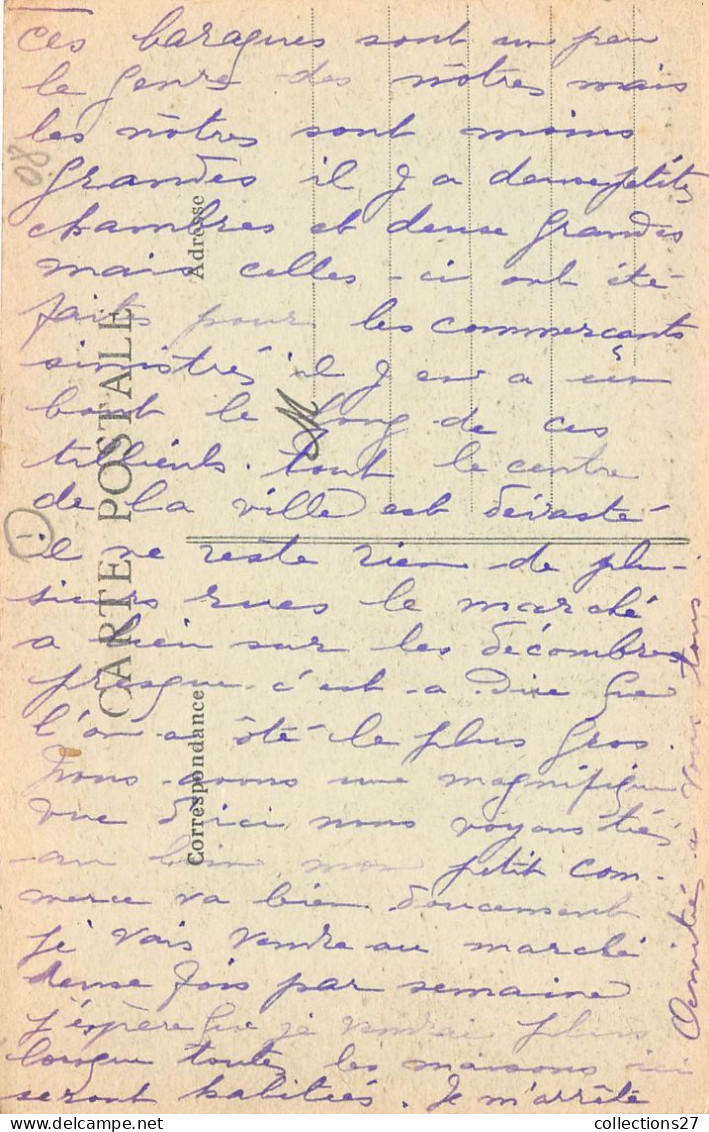 Ces baraques sont un peu
le genre des nôtres mais
les nôtres sont moins
grandes il y a deuse petites
chambres et deuse grandes
mais celles-ci ont été
faits pour les commerçants
sinistrés il y en a un
bout le long de ces
tilleuls. tout le centre
de la ville est dévasté
il ne reste rien de plu-
sieurs rues le marché
a lieu sur les décombres
presque c'est a dire que
l'on a ôté le plus gros.
Nous avons une magnifique
vue d'ici nous voyons très
au loin mon petit com-
merce va bien doucement
je vais vendre au marché
deuse fois par semaine
j'éspère que je vendrai plus
lorsque toutes les maisons ici
seront habitées. Je m'arrête
Amitiés a vous tous
CARTE POSTALE
Correspondance
Adresse
M
08
collections27